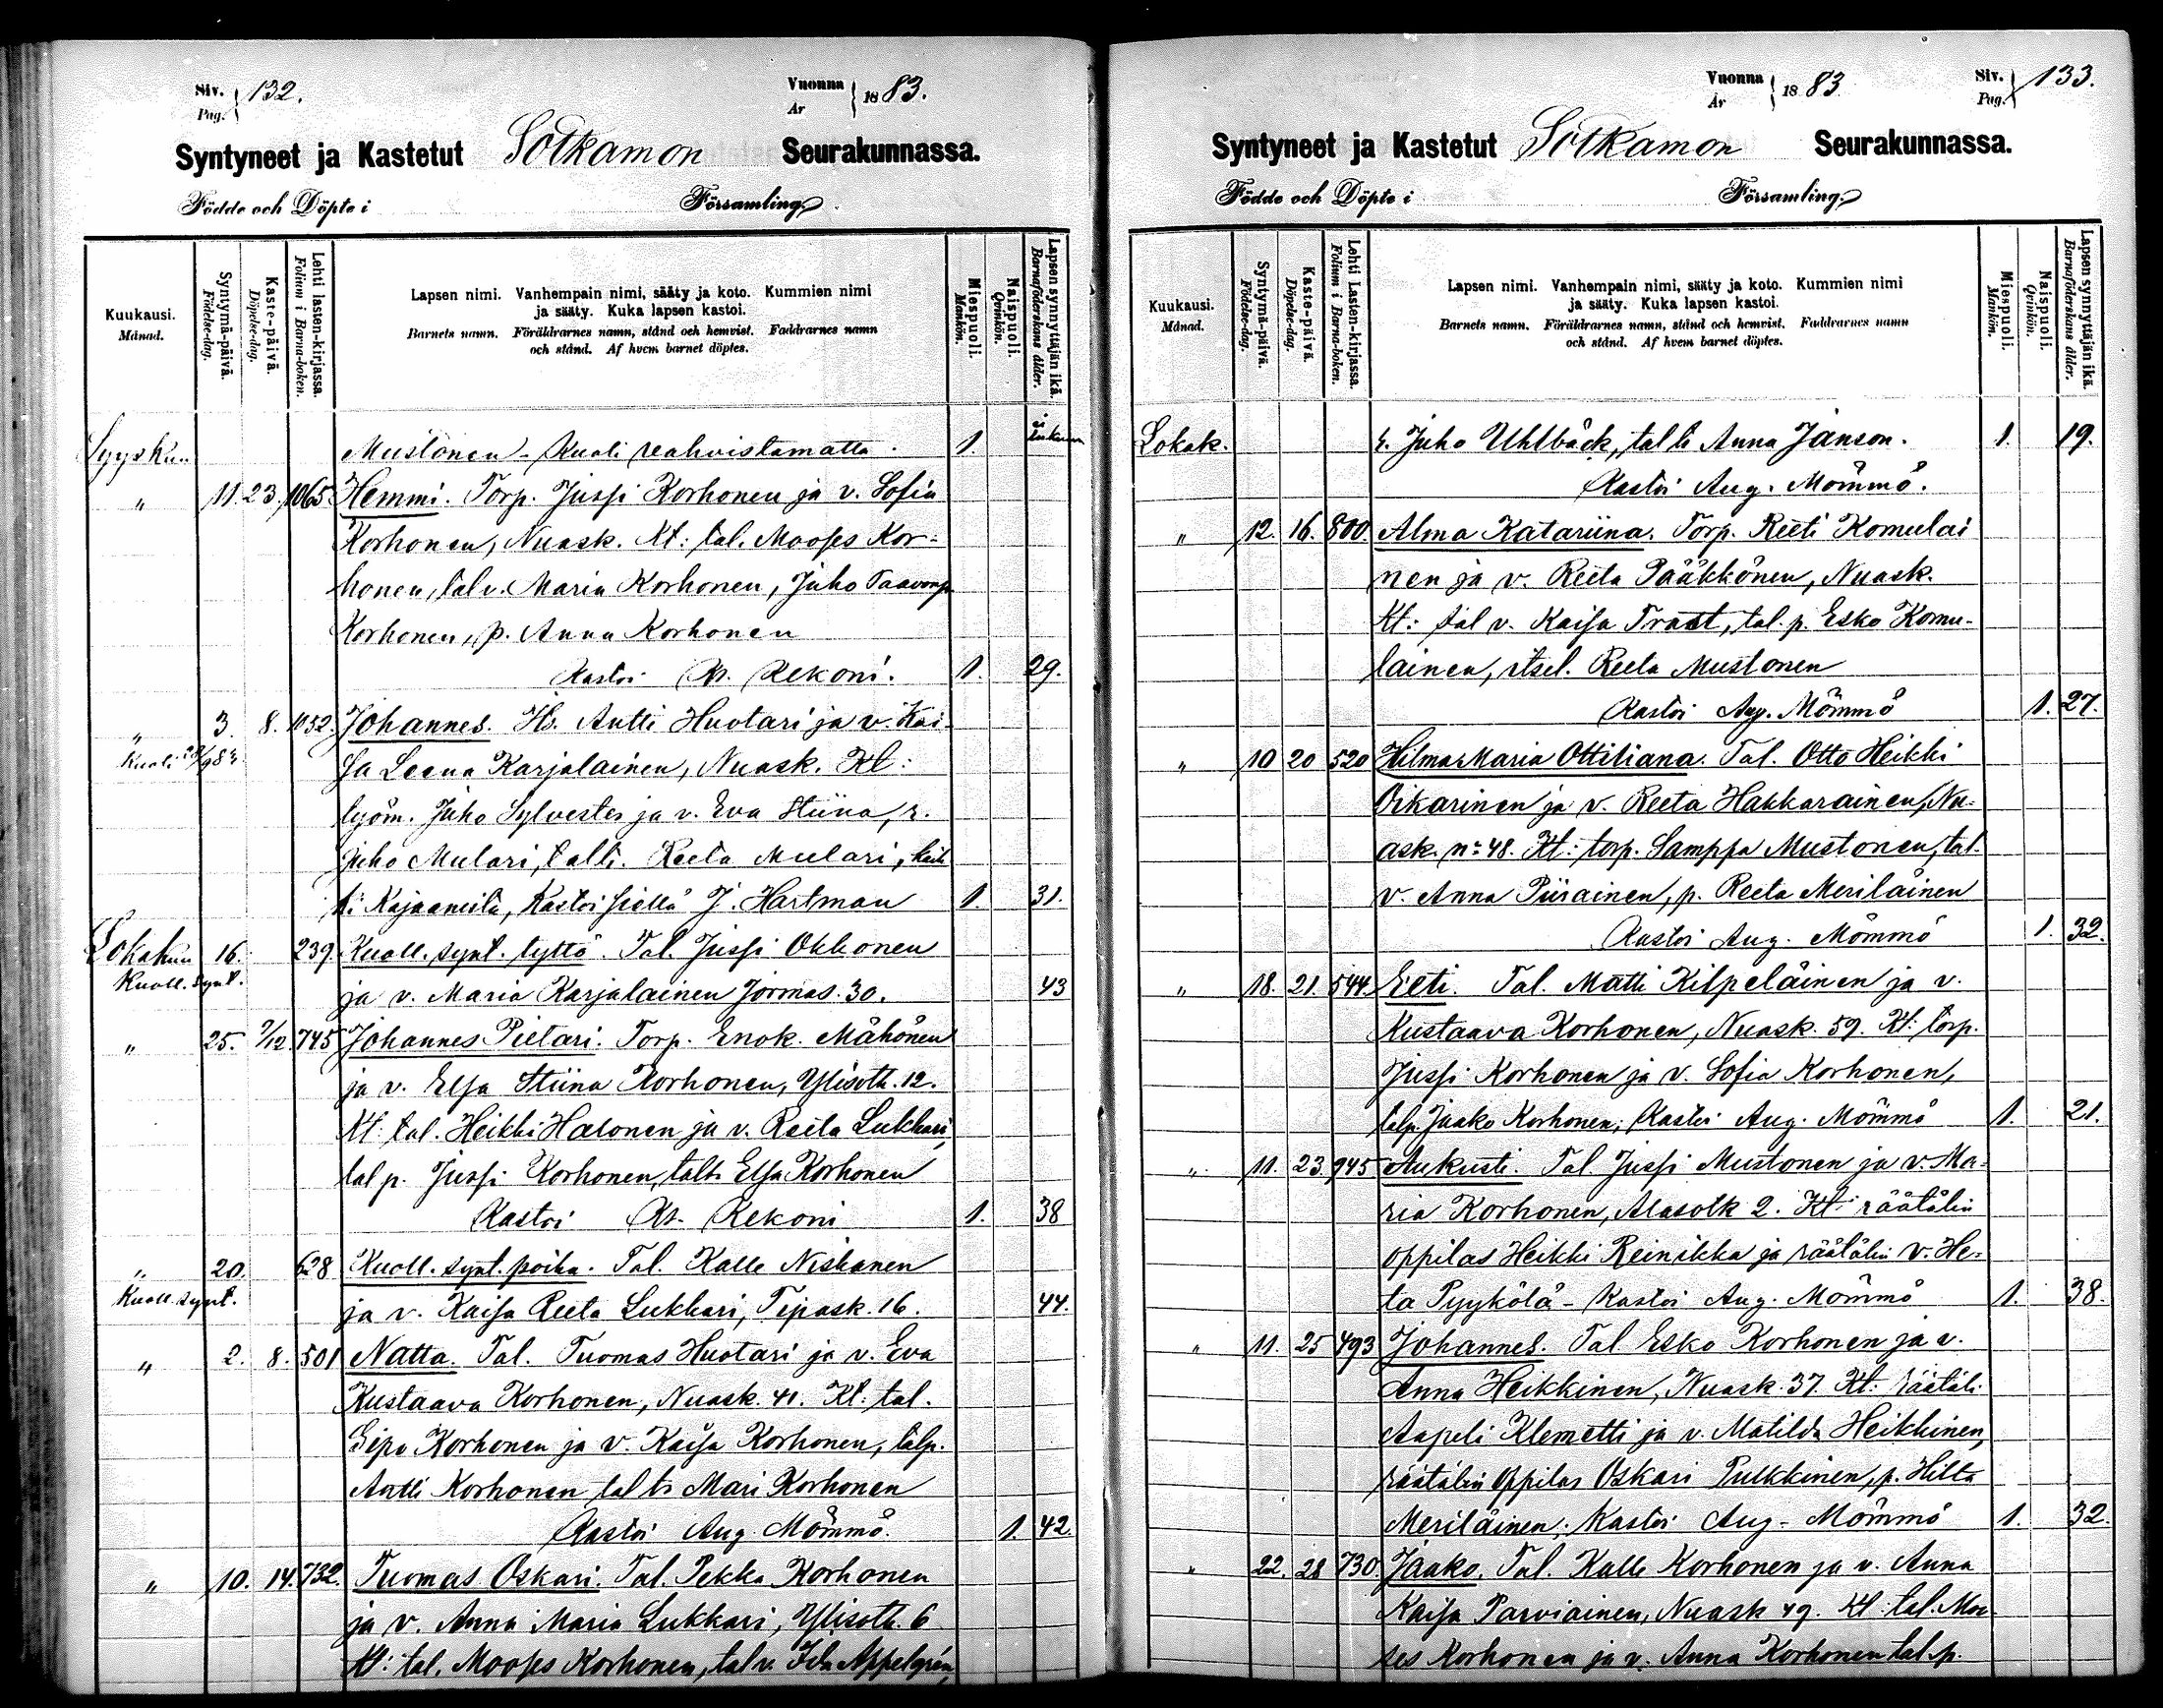 Siv. Pag. 132.
Vuonna År 1883.
Syntyneet ja Kastetut Sotkamon Seurakunnassa.
Födde och Döpte i Församling.
Kuukausi. Månad.
Syntymä-päivä. Födelse-dag.
Kaste-päivä. Döpelse-dag.
Lehti lasten-kirjassa. Folium i Barna-boken.
Lapsen nimi. Vanhempain nimi, sääty ja koto. Kummien nimi
ja sääty. Kuka lapsen kastoi.
Barnets namn. Föräldrarnes namn, stånd och hemvist. Faddrarnes namn
och stånd. Af hvem barnet döptes.
Miespuoli. Mankön.
Naispuoli. Qvinkön.
Lapsen synnyttäjän ikä. Barnaföderskans ålder.
Syysku. Mustonen - Kuoli vahvistamatta. 1.
" 11. 23. 1065 Hemmi. Torp. Jussi Korhonen ja v. Sofia
Korhonen, Nuask. Kt: tal. Mooses Kor-
honen, tal v. Maria Korhonen, Juho Paavonp.
Korhonen, p. Anna Korhonen
Kastoi A. Rekoni. 1. 29.
" 3. 8. 1052. Johannes. Its. Antti Huotari ja v. Kai-
Kuoli
sa Leena Karjalainen, Nuask. Kt:
työm. Juho Sylvester ja v. Eva Stiina, r.
Juho Mulari, talt. Reeta Mulari,
Kajaanista, Kastoi siellä J. Hartman 1. 31.
Lokakuu 16. 239. Kuoll. synt. tyttö. Tal. Jussi Okkonen
Kuoll. synt.
ja v. Maria Karjalainen Jormas. 30. 43
" 25. 9/12. 745 Johannes Pietari. Torp. Enok. Mähönen
ja v. Elsa Stiina Korhonen, Ylisotk. 12.
Kt. tal. Heikki Halonen ja v. Reeta Lukkari,
tal p. Jussi Korhonen, talt. Elsa Korhonen
Kastoi A. Rekoni 1. 38
" 20. 628 Kuoll. synt. poika. Tal. Kalle Niskanen
Kuoll. synt.
ja v. Kaisa Reeta Lukkari, Tipask. 16. 44.
" 2. 8. 501 Natta. Tal. Tuomas Huotari ja v. Eva
Kustaava Korhonen, Nuask. 41. Kt: tal.
Sipo Korhonen ja v. Kaisa Korhonen, talp.
Antti Korhonen tal t. Mari Korhonen
Kastoi Aug. Mömmö. 1. 42.
" 10. 14. 732. Tuomas Oskari. Tal. Pekka Korhonen
ja v. Anna Maria Lukkari, Ylisotk. 6
Kt: tal. Mooses Korhonen, tal v. Ida Appelgrén,
Vuonna År 1883
Siv. Pag. 133.
Syntyneet ja Kastetut Sotkamon Seurakunnassa.
Födde och Döpte i Församling.
Kuukausi. Månad.
Syntymä-päivä. Födelse-dag.
Kaste-päivä. Döpelse-dag.
Lehti Lasten-kirjassa. Folium i Barna-boken.
Lapsen nimi. Vanhempain nimi, sääty ja koto. Kummien nimi
ja sääty. Kuka lapsen kastoi.
Barnets namn. Föräldrarnes namn, stånd och hemvist. Faddrarnes namn
och stånd. Af hvem barnet döptes.
Miespuoli. Mankön.
Naispuoli. Qvinkön.
Lapsen synnyttäjän ikä. Barnaföderskans ålder.
Lokak. r. Juho Uhlbäck, tal t. Anna Janson. 1. 19.
Kastoi Aug. Mömmö.
" 12. 16. 800. Alma Katariina. Torp. Reeti Komulai
nen ja v. Reeta Pääkkönen, Nuask.
Kt: tal v. Kaisa Trast, tal. p. Esko Komu-
lainen, itsel. Reeta Mustonen
Kastoi Aug. Mömmö 1. 27.
" 10 20 520 Hilma Maria Ottiliana. Tal. Otto Heikki
Oikarinen ja v. Reeta Hakkarainen, Nu-
ask. no 48. Kt: torp. Samppa Mustonen, tal.
v. Anna Piirainen, p. Reeta Meriläinen
Kastoi Aug. Mömmö 1. 32.
" 18. 21. 544. Eeti. Tal. Matti Kilpeläinen ja v.
Kustaava Korhonen, Nuask. 59. Kt: torp.
Jussi Korhonen ja v. Sofia Korhonen,
talp. Jaako Korhonen, Kastoi Aug. Mömmö 1. 21.
" 11. 23. 945 Aukusti. Tal Jussi Mustonen ja v. Ma-
ria Korhonen, Alasotk 2. Kt: räätälin
oppilas Heikki Reinikka ja räätälin v. He-
ta Pyykölä - Kastoi Aug. Mömmö 1. 38.
" 11. 25 493 Johannes. Tal Esko Korhonen ja v.
Anna Heikkinen, Nuask. 37. Kt: räätäli
Aapeli Klemetti ja v. Matilda Heikkinen,
räätälin oppilas Oskari Pulkkinen, p. Hilta
Meriläinen. Kastoi Aug. Mömmö 1. 32.
" 22. 28 730. Jaako. Tal. Kalle Korhonen ja v. Anna
Kaisa Parviainen, Nuask 49. Kt: tal. Moo-
ses Korhonen ja v. Anna Korhonen tal. p.